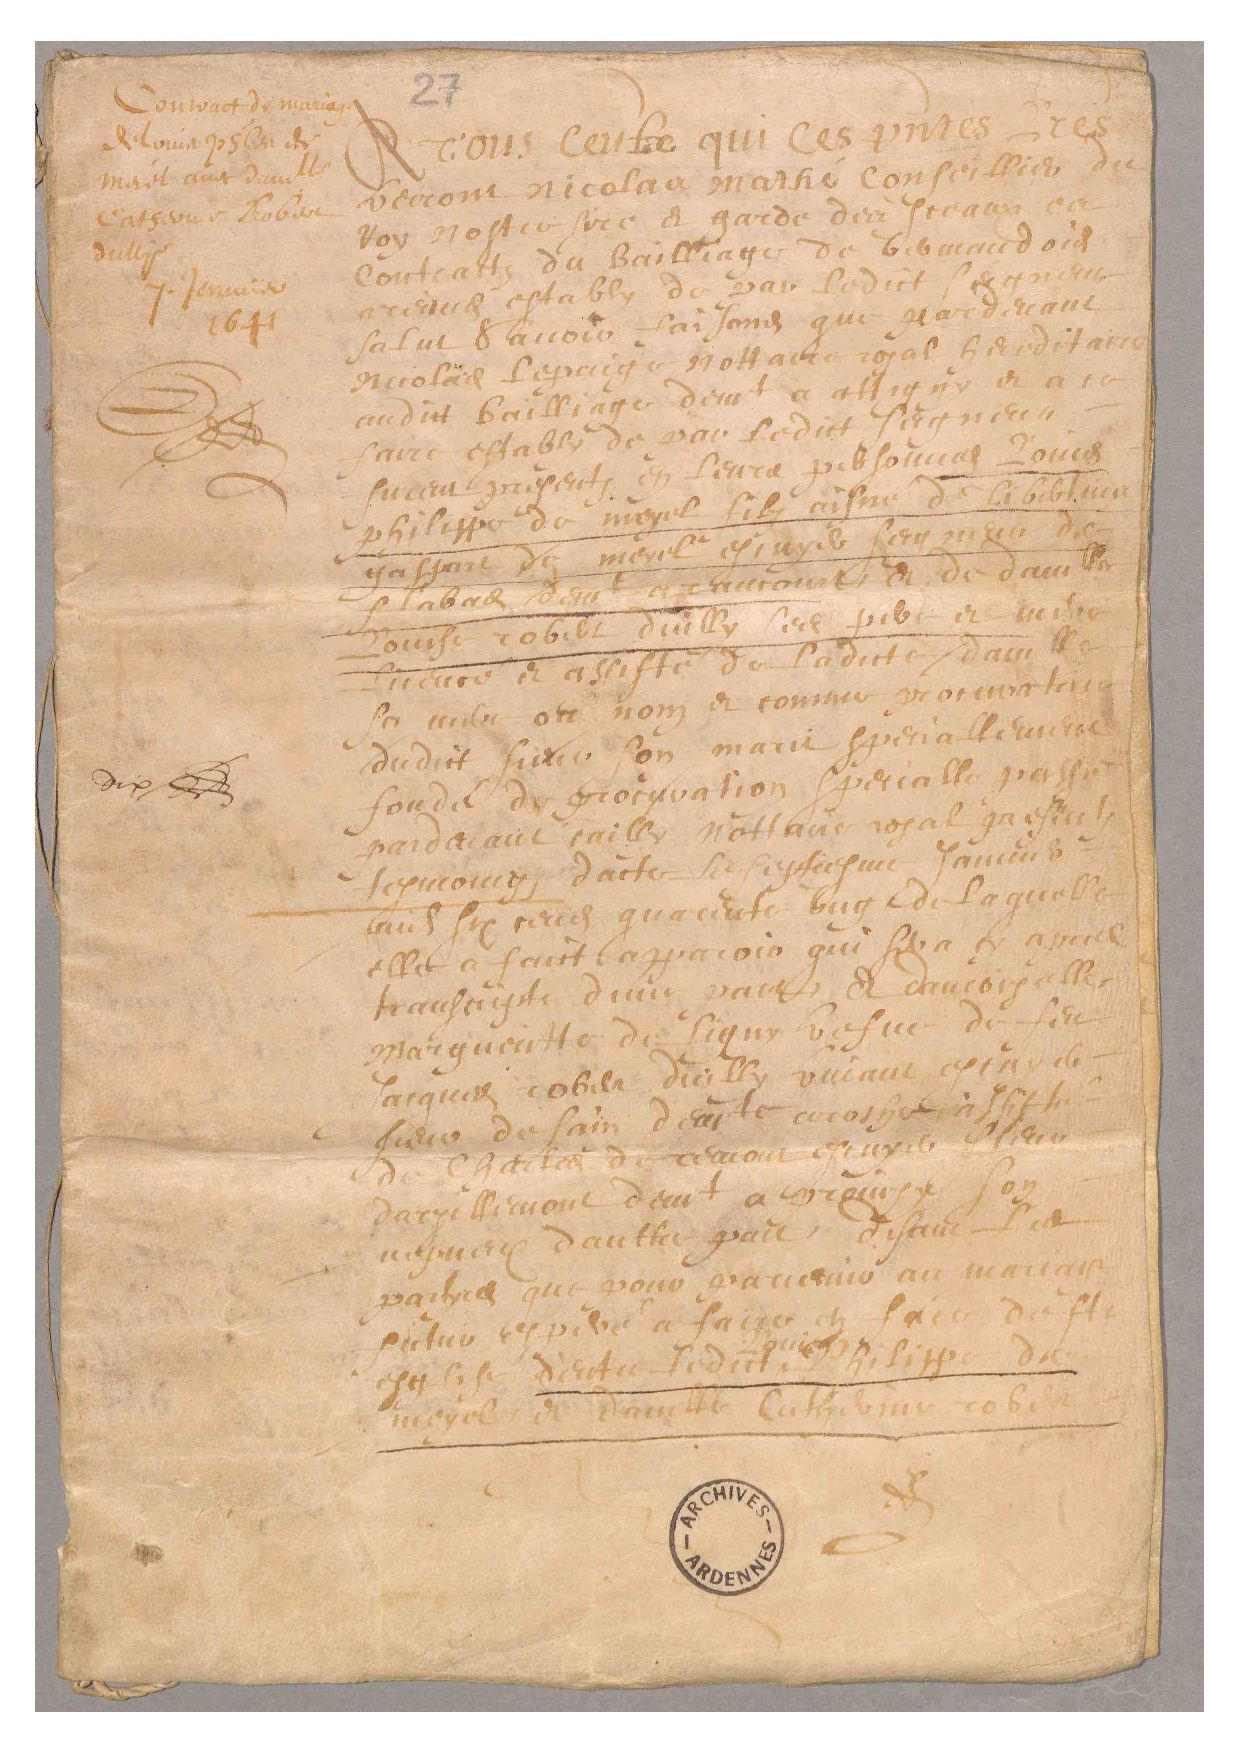 27
Contract de mariage
de Louis phles de
meyel avec damlle
Catherine Robert
duilly
7e Jenvier
1641
A tous Ceulx qui Ces pntes Lres
verront Nicolas Mathé Conseillier du
Roy nostre sire et garde des sceaux et
Contractz du Bailliage de Vermandois
establys de par ledict seigneur
salut Scavoir faisons que pardevant
Nicolas Lepaige Nottaire royal hereditaire
audict bailliage demt a attigny et a ce
faire estably de par ledict seigneur
furent presentz en leurs personnes Louis
philippe de meyel filz aisné de
gaspart de meyel escuyer seigneur de
demt a raucourt et de damlle
Louise robert duilly ses pere et mere
assisté de ladicte damlle
sa mere ou nom et comme procuratrice
dudict sieur son marit speciallement
fondé de procuration specialle passée
pardevant nottaire royal presentz
tesmoings dacte le septiesme Janvier
mil six cens quarente ung de laquelle
elle a faict apparoir qui sera cy apres
transcripte d'une part et damoiselle
Marguerite de Ligny vefue de feu
Jacques robert duilly vivant escuyer
sieur de sain demte assistée
de Charles de escuyer sieur
dargillemont demt a son
nepveu dautre part disant les
partyes que pour parvenir au mariage
futur esperé a faire en face de ste
esglise d'entre ledict Louis Philippe de
meyel et damlle Catherine robert
dix
ARCHIVES
ARDENNES